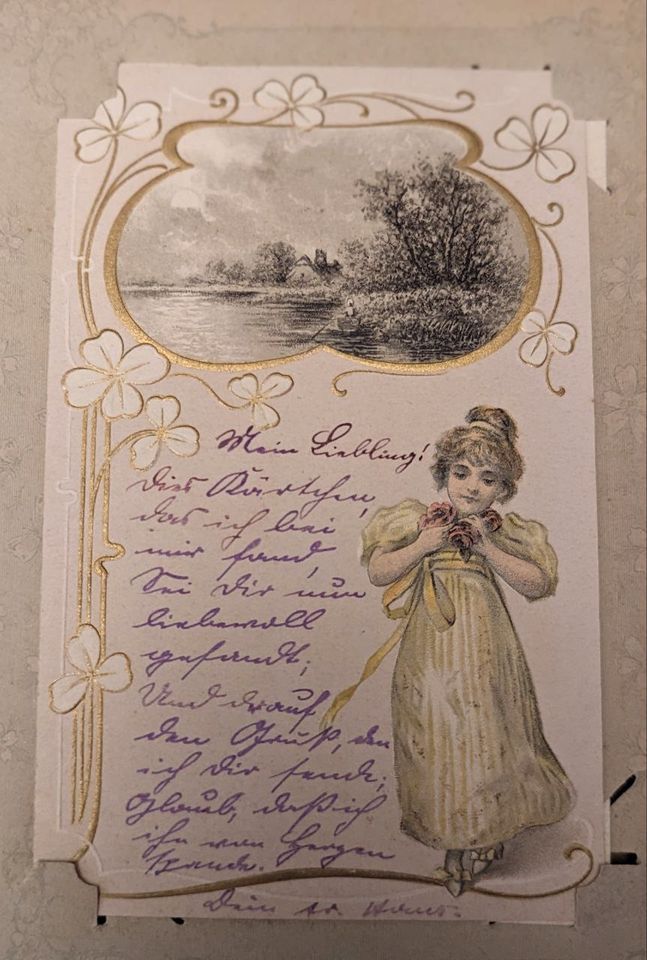 Mein Liebling!
Dies Kärtchen,
das ich bei
mir fand,
Sei Dir nun
liebevoll
gesandt;
Und drauf
den Gruß, den
ich Dir sende;
Glaub, daß ich
ihn von Herzen
spende.
Dein tr. Hans.